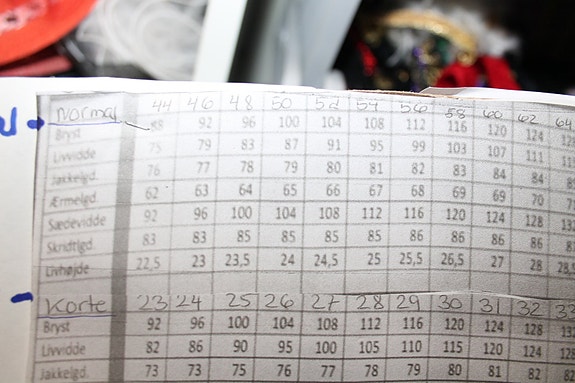 Normal 44 46 48 50 52 54 56 58 60 62 64
Bryst 88 92 96 100 104 108 112 116 120 124 128
Livvidde 75 79 83 87 91 95 99 103 107 111
Jakkelgd. 76 77 78 79 80 81 82 83 84 84
Ærmelgd. 62 63 64 65 66 67 68 69 69 70
Sædevidde 92 96 100 104 108 112 116 120 124 128
Skridtlgd. 83 83 85 85 85 85 86 86 86 86
Livhøjde 22,5 23 23,5 24 24,5 25 25,5 26,5 27 28 28,5
Korte 23 24 25 26 27 28 29 30 31 32 33
Bryst 92 96 100 104 108 112 116 120 124 128
Livvidde 82 86 90 95 100 105 110 115 120 124 128
Jakkelgd. 73 73 75 76 77 78 79 80 81 82